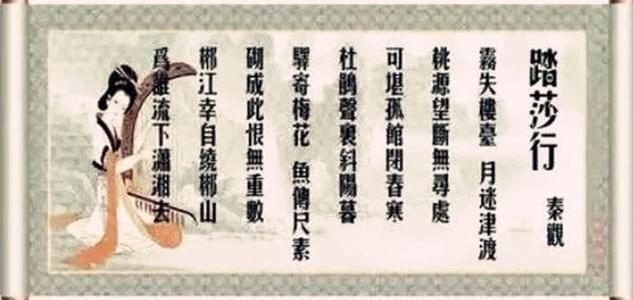 踏莎行
秦觀
霧失樓臺 月迷津渡
桃源望斷無尋處
可堪孤館閉春寒
杜鵑聲裏斜陽暮
驛寄梅花 魚傳尺素
砌成此恨無重數
郴江幸自繞郴山
爲誰流下瀟湘去